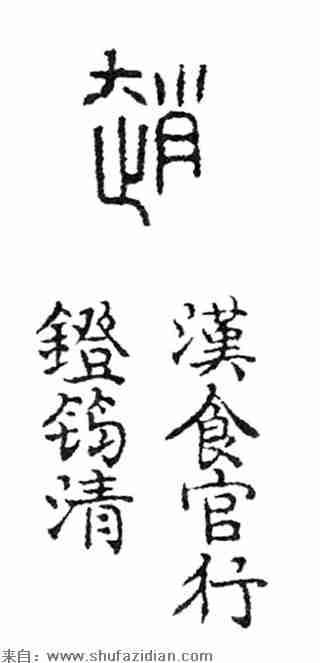 趙
漢食官行
鐙筠清
来自：www.shufazidian.com